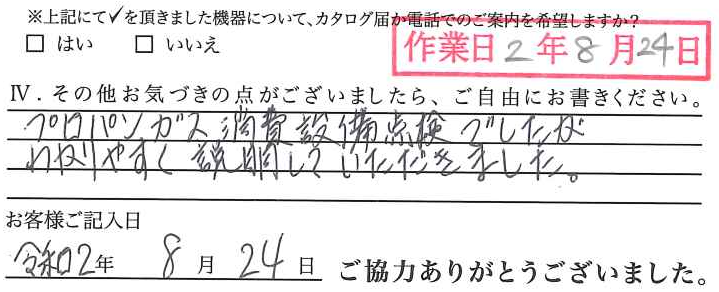 ※上記にて✓を頂きました機器について、カタログ届か電話でのご案内を希望しますか？
□ はい □ いいえ
作業日2年8月24日
Ⅳ．その他お気づきの点がございましたら、ご自由にお書きください。
プロパンガス消費設備点検でしたが
わかりやすく説明していただきました。
お客様ご記入日
令和2年 8月24日 ご協力ありがとうございました。